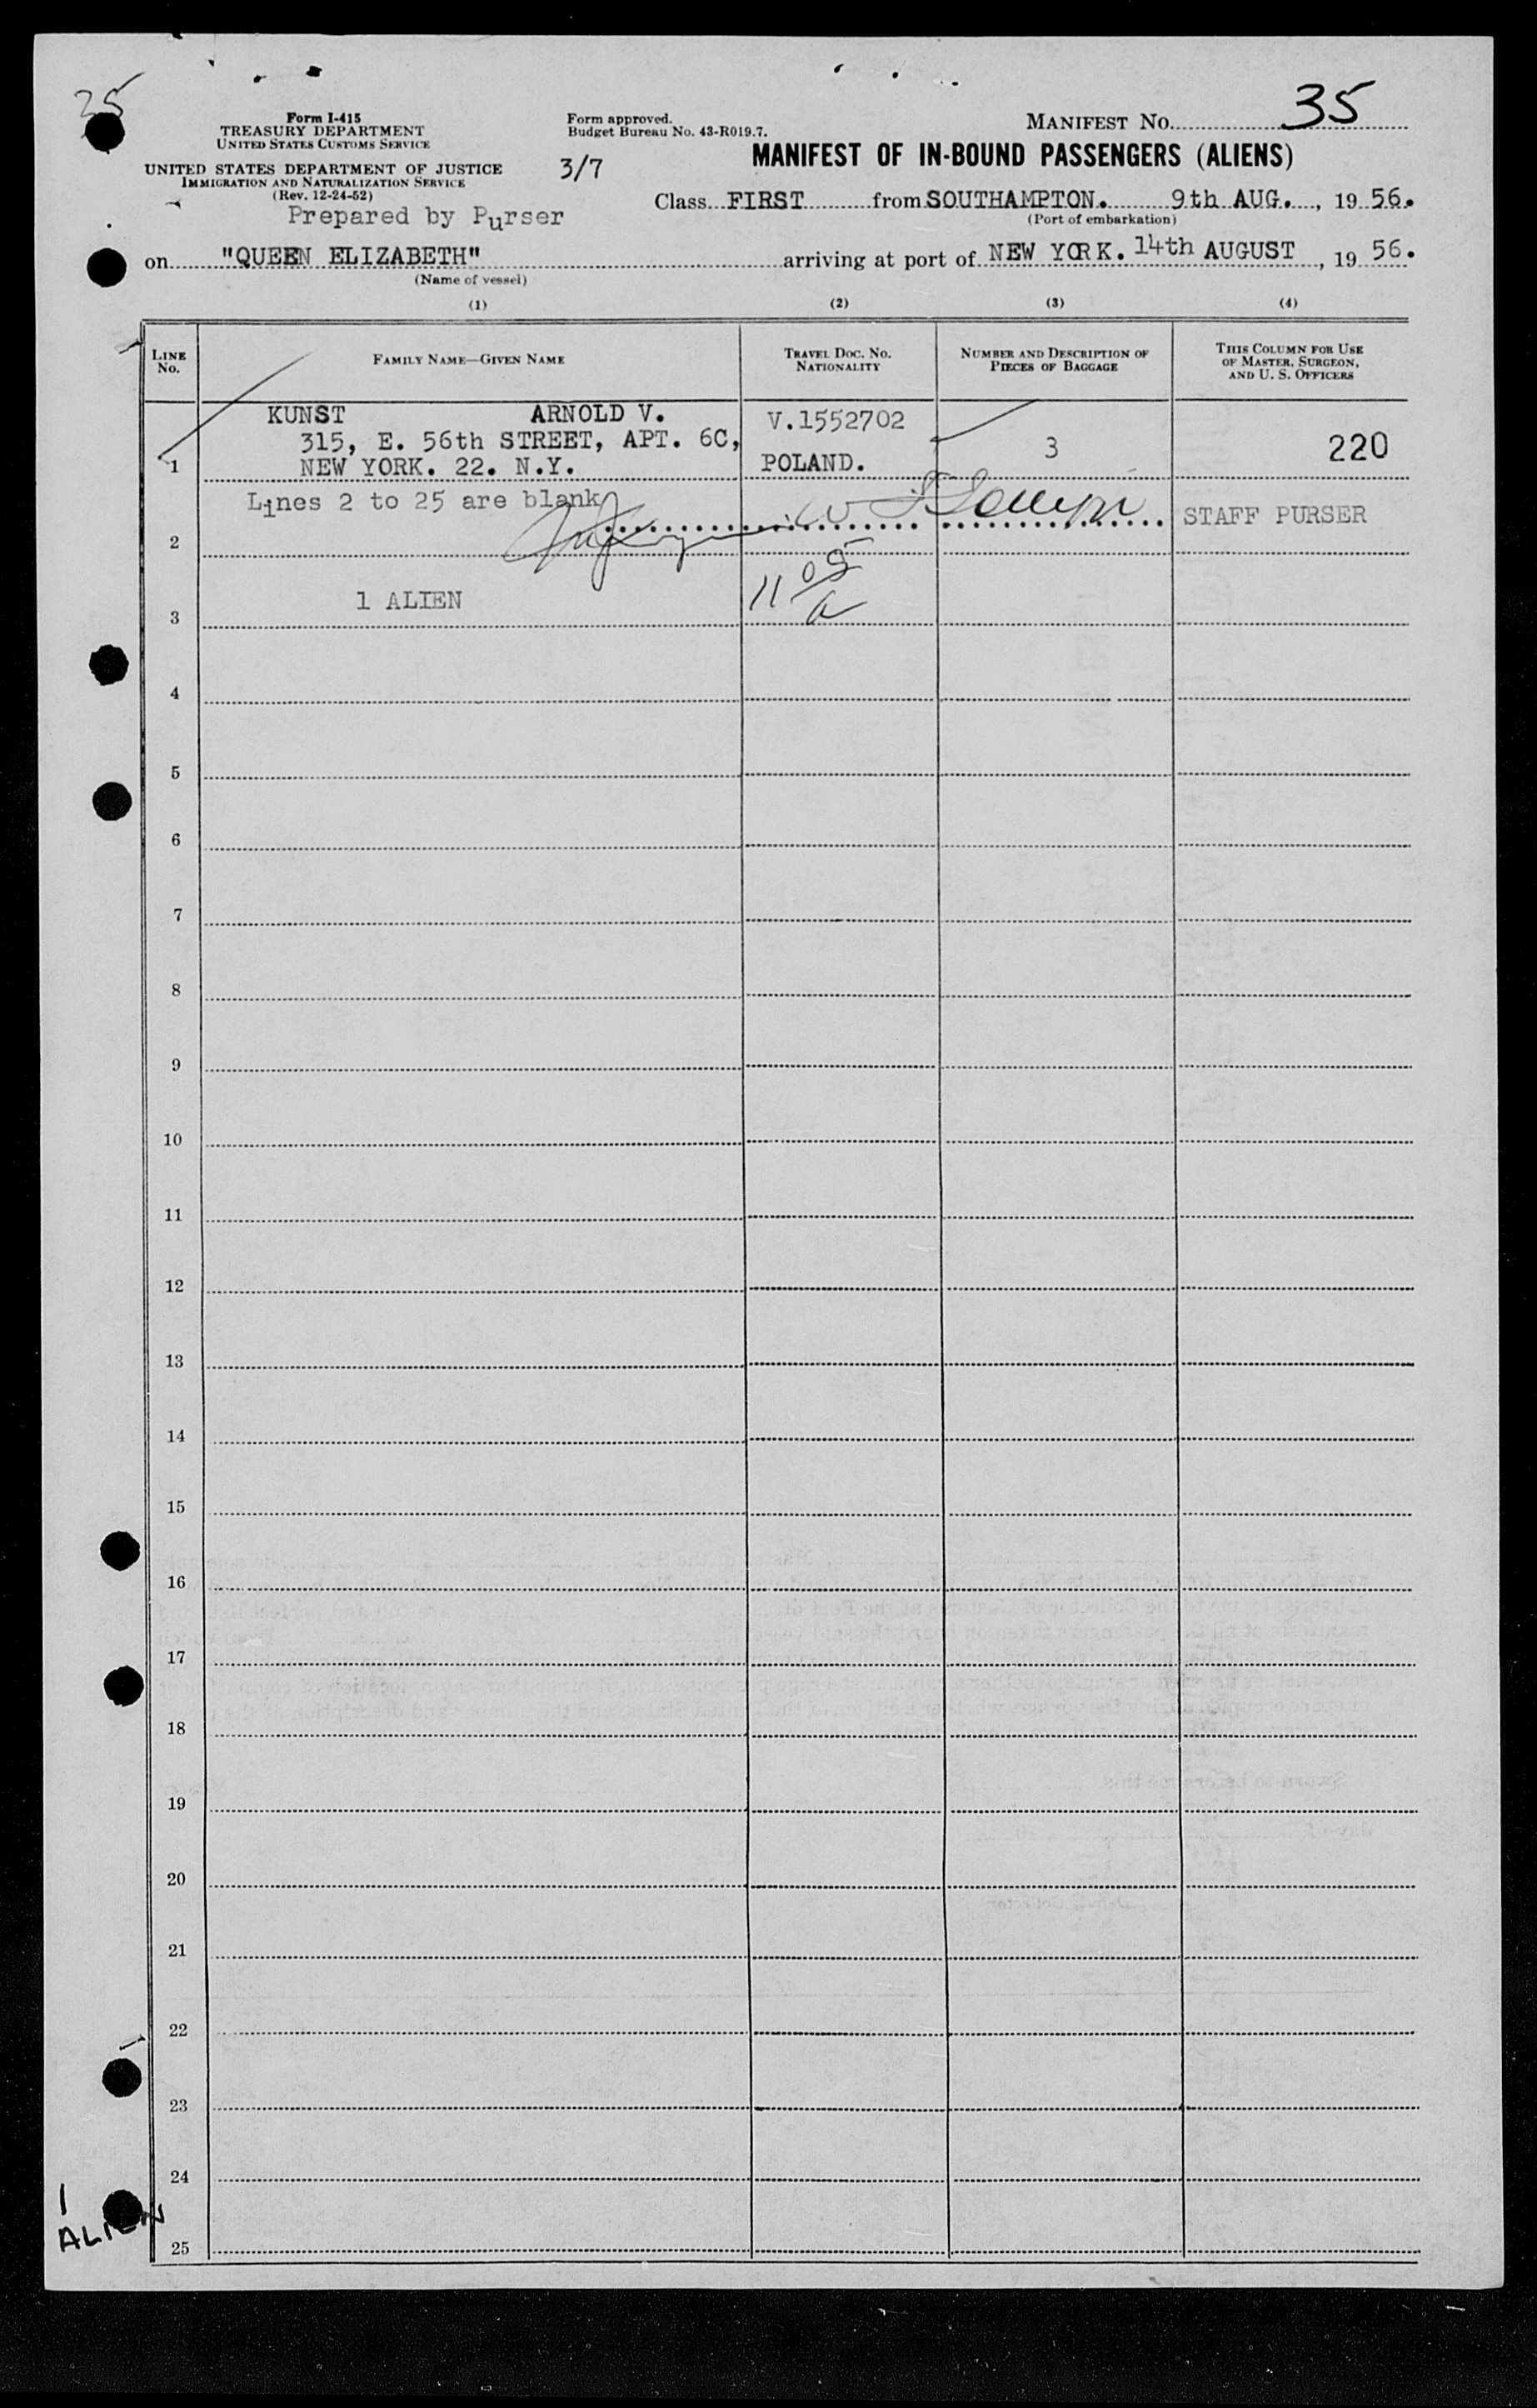 35
Form I-415
TREASURY DEPARTMENT
UNITED STATES CUSTOMS SERVICE
UNITED STATES DEPARTMENT OF JUSTICE
IMMIGRATION AND NATURALIZATION SERVICE
(Rev. 12-24-52)
Prepared by Purser
Form approved.
Budget Bureau No. 43-R019.7.
3/7
MANIFEST NO. 35
MANIFEST OF IN-BOUND PASSENGERS (ALIENS)
Class FIRST from SOUTHAMPTON. 9th AUG., 19 56.
(Port of embarkation)
on "QUEEN ELIZABETH" arriving at port of NEW YORK. 14th AUGUST, 19 56.
(Name of vessel)
(1) (2) (3) (4)
LINE NO. FAMILY NAME—GIVEN NAME TRAVEL DOC. NO. NATIONALITY NUMBER AND DESCRIPTION OF PIECES OF BAGGAGE THIS COLUMN FOR USE OF MASTER, SURGEON, AND U. S. OFFICERS
KUNST ARNOLD V. V.1552702
315, E. 56th STREET, APT. 6C,
1 NEW YORK. 22. N.Y. POLAND. 3 220
Lines 2 to 25 are blank
STAFF PURSER
2
1 ALIEN
3
4
5
6
7
8
9
10
11
12
13
14
15
16
17
18
19
20
21
22
23
24
25
1
ALIEN